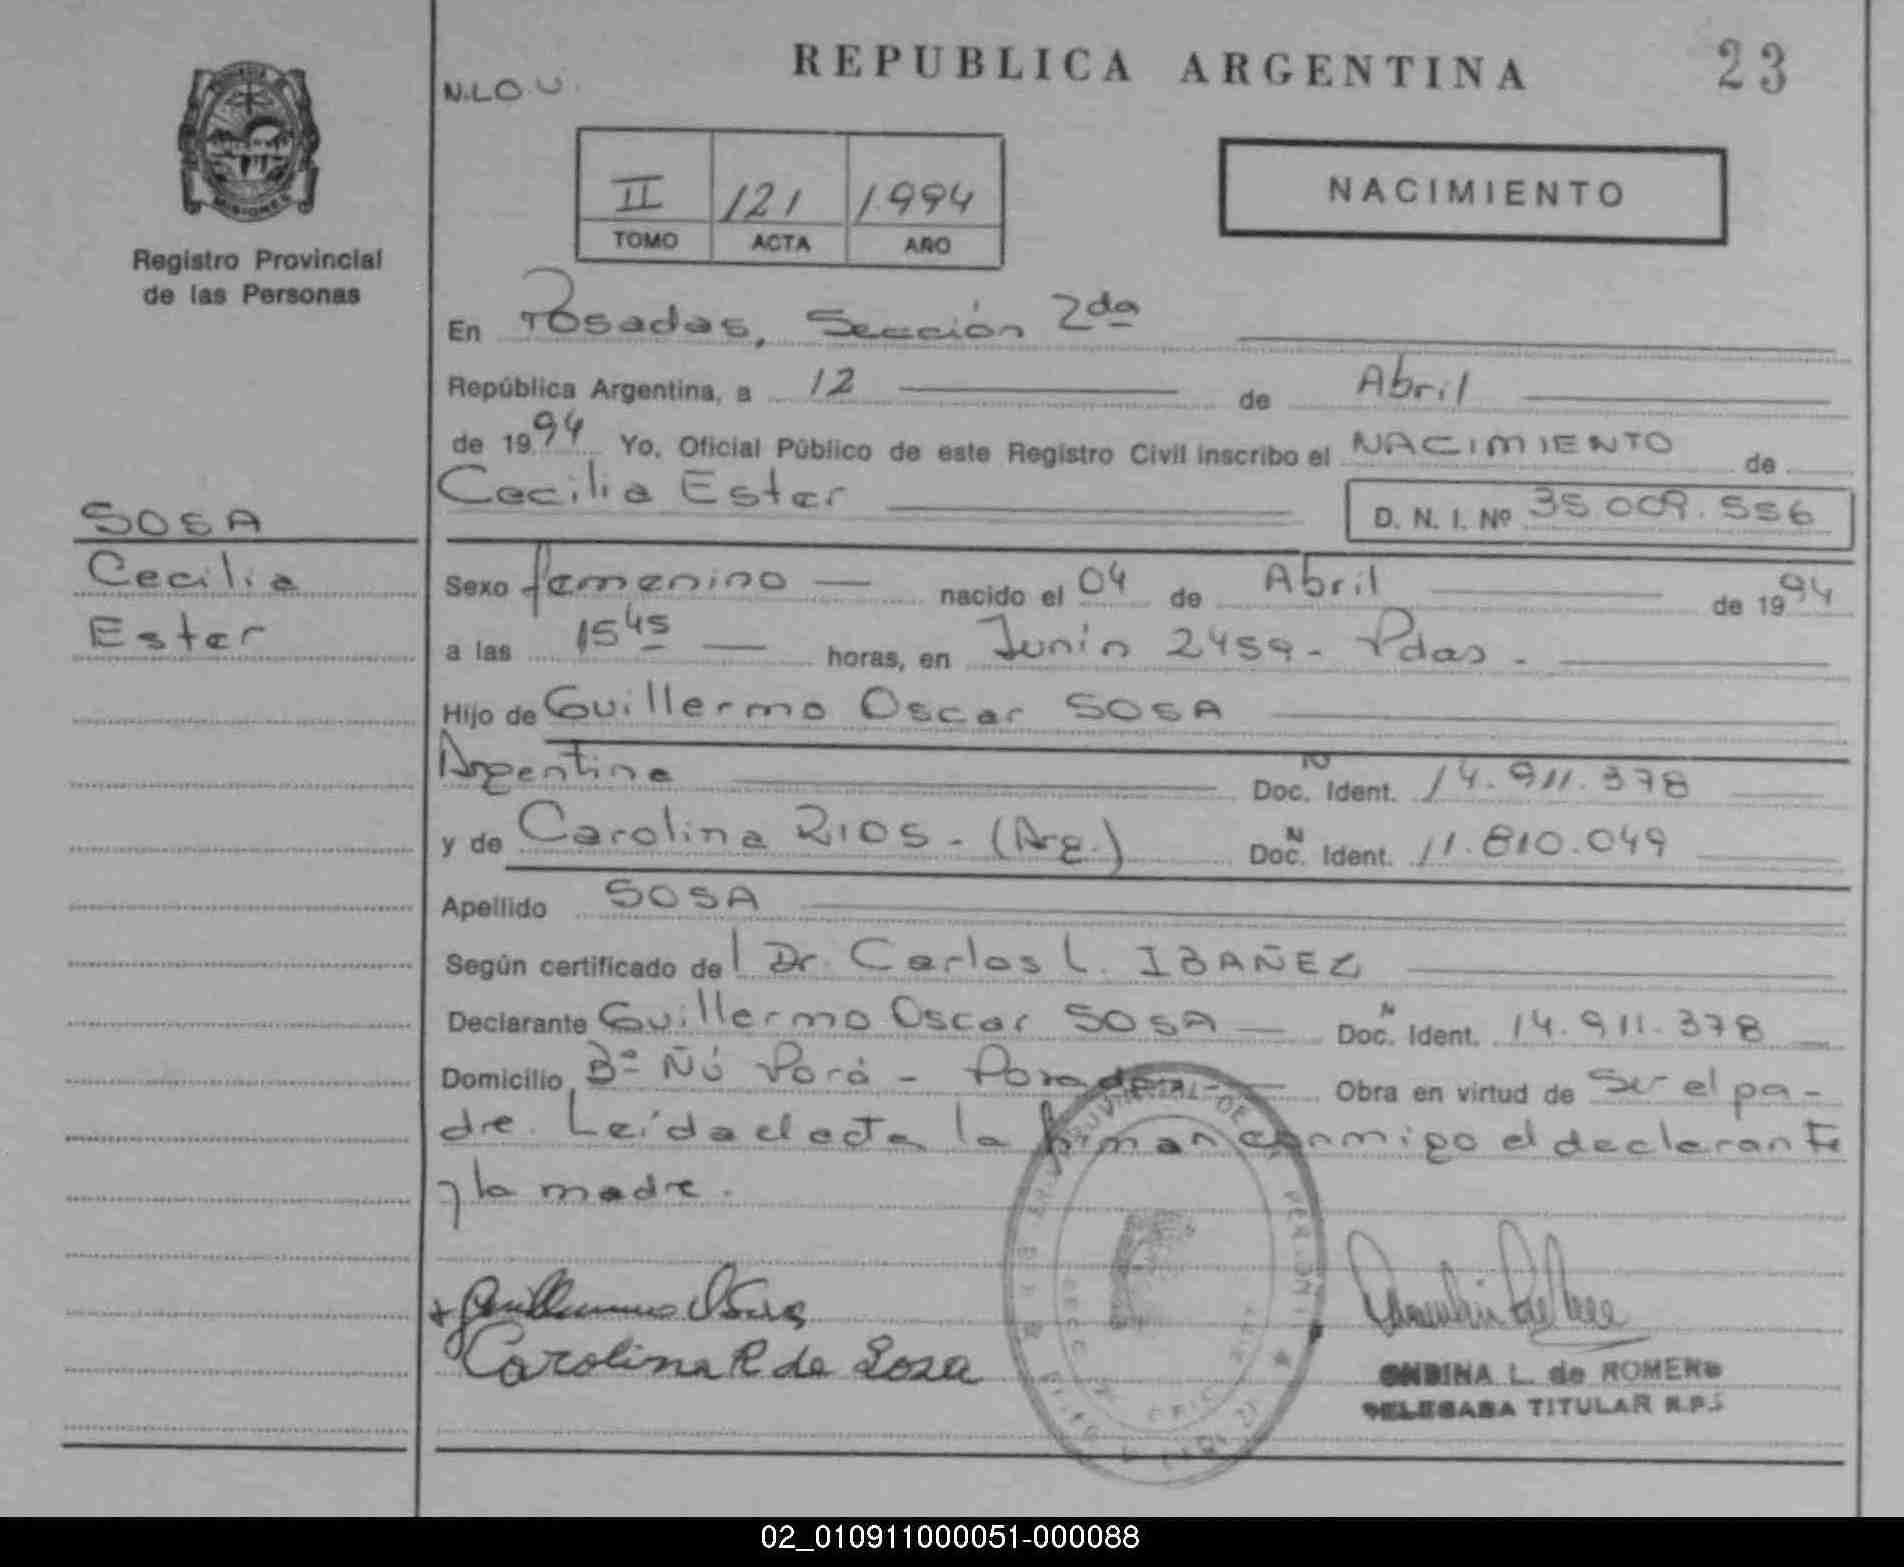 REPUBLICA ARGENTINA
23
N.LO.U.
II 121 1994
TOMO ACTA AÑO
NACIMIENTO
MISIONES
Registro Provincial
de las Personas
SOSA
Cecilia
Ester
En Posadas, Sección 2da
República Argentina, a 12 de Abril
de 1994 Yo, Oficial Público de este Registro Civil inscribo el NACIMIENTO de
Cecilia Ester D. N. I. Nº 35.009.556
Sexo femenino nacido el 04 de Abril de 1994
a las 15 45 horas, en Junín 2459 - Pdas.
Hijo de Guillermo Oscar SOSA
Argentina Doc. Ident. 14.911.378
y de Carolina RIOS - (Arg.) Doc. Ident. 11.810.049
Apellido SOSA
Según certificado del Dr. Carlos L. IBAÑEZ
Declarante Guillermo Oscar SOSA Doc. Ident. 14.911.378
Domicilio Bº Ñú Porá - Posadas - Obra en virtud de Ser el pa-
dre. Leída el acta, la firman conmigo el declarante
y la madre.
Guillermo Sosa
Carolina R de Sosa
ONDINA L. de ROMERO
DELEGADA TITULAR R.P.
02_010911000051-000088